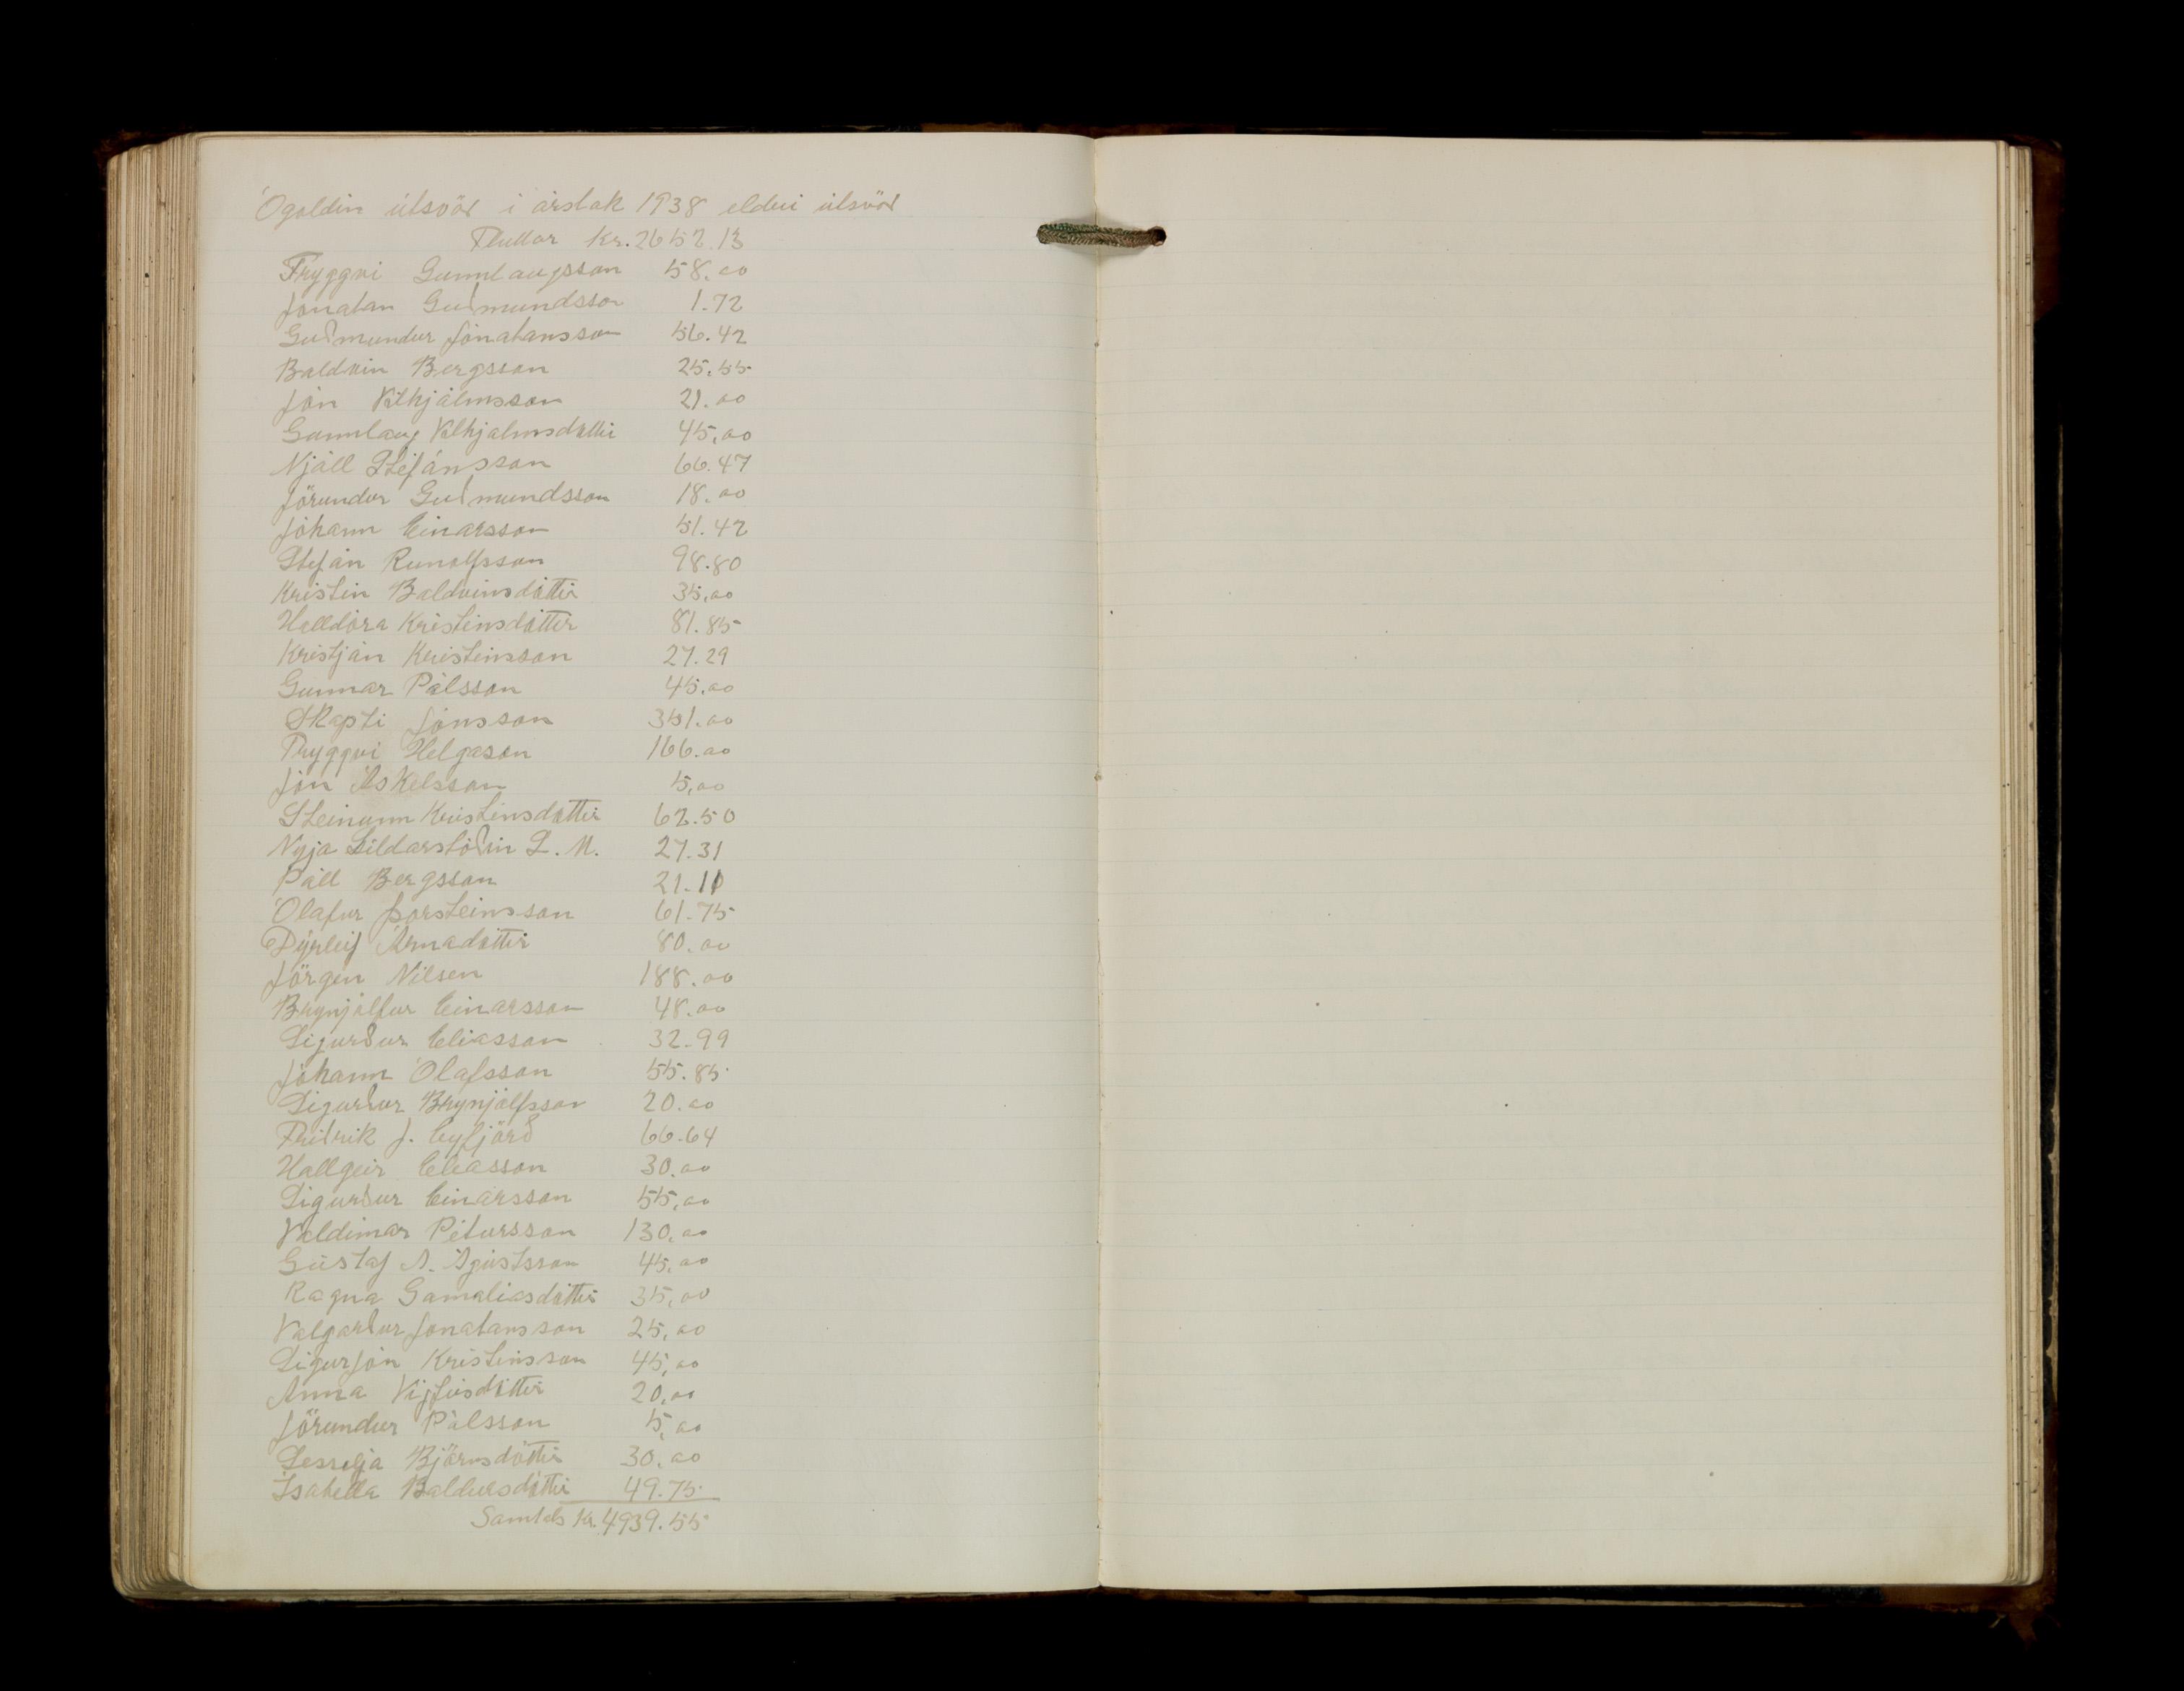 Ógoldin útsvör í árslok 1938 eldri útsvör
Fluttar Kr. 2652.13
Tryggvi Gunnlaugsson 58.00
Jónatan Guðmundsson 1.72
Guðmundur Jónatansson 56.42
Baldvin Bergsson 25.55
Jón Vilhjálmsson 21.00
Gunnlaug Vilhjálmsdóttir 45.00
Njáll Stefánsson 66.47
Jörundur Guðmundsson 18.00
Jóhann Einarsson 51.42
Stefán Runólfsson 98.80
Kristín Baldvinsdóttir 35.00
Halldóra Kristinsdóttir 81.85
Kristján Kristinsson 27.29
Gunnar Pálsson 45.00
Skapti Jónsson 351.00
Tryggvi Helgason 166.00
Jón Áskelsson 5.00
Steinunn Kristinsdóttir 62.50
Nýja Síldarstöðin L. M. 27.31
Páll Bergsson 21.10
Ólafur Þorsteinsson 61.75
Dýrleif Árnadóttir 80.00
Jörgen Nilsen 188.00
Brynjólfur Einarsson 48.00
Sigurður Elíasson 32.99
Jóhann Ólafsson 55.85
Sigurður Brynjólfsson 20.00
Friðrik J. Eyfjörð 66.64
Hallgeir Elíasson 30.00
Sigurður Einarsson 55.00
Valdimar Pétursson 130.00
Gústaf A. Ágústsson 45.00
Ragna Gamalíasdóttir 35.00
Valgarður Jónatansson 25.00
Sigurjón Kristinsson 45.00
Anna Vigfúsdóttir 20.00
Jörundur Pálsson 5.00
Sesselja Björnsdóttir 30.00
Ísabella Baldursdóttir 49.75
Samtals Kr. 4939.55